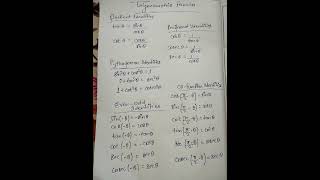 Trigonometric formula
Quotient Identities
tanθ = sinθ/cosθ
cotθ = cosθ/sinθ
Reciprocal Identities
cotθ = 1/
cosecθ = 1/
secθ = 1/
Pythagorean Identities
sin²θ + cos²θ = 1
1 + tan²θ = sec²θ
1 + cot²θ = cosec²θ
Even-odd Identities
sin(-θ) = -sinθ
cos(-θ) = cosθ
tan(-θ) = -tanθ
cot(-θ) = -cotθ
sec(-θ) = secθ
cosec(-θ) =
Co-function Identities
cos(π/2-θ) = sinθ
sin(π/2-θ) = cosθ
cot(π/2-θ) = tanθ
tan(π/2-θ) = cotθ
sec(π/2-θ) =
cosec(π/2-θ) = secθ